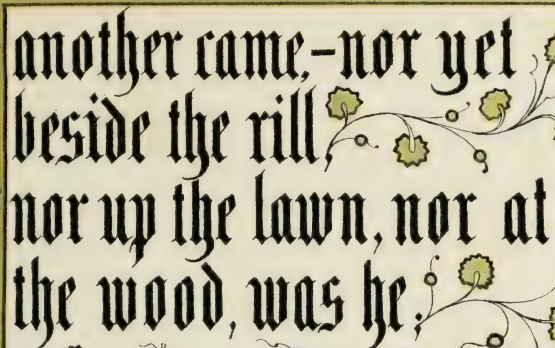 another came,–nor yet
beside the rill,
nor up the lawn, nor at
the wood, was he;